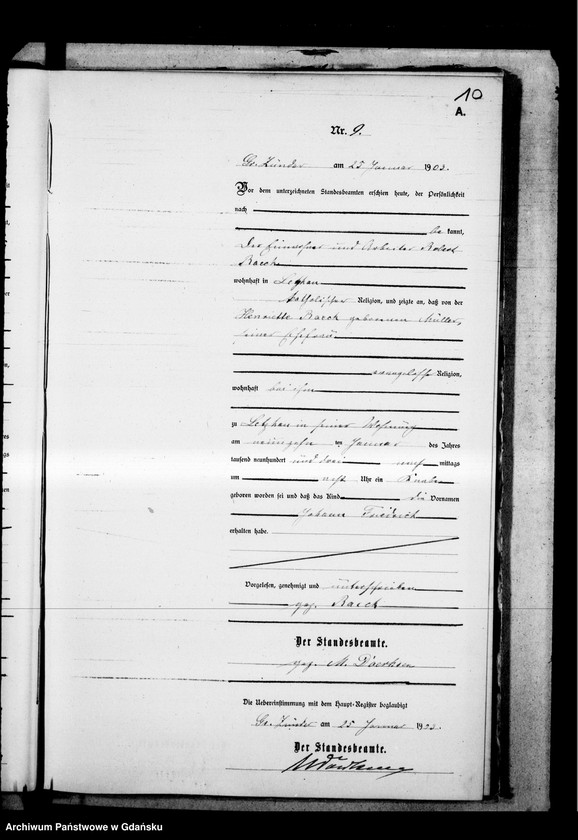 10
A.
Nr. 9.
Gr. Zünder am 25 Januar 1903.
Vor dem unterzeichneten Standesbeamten erschien heute, der Persönlichkeit
nach
be kannt,
der Eigenthümer und Arbeiter Robert
Raeck
wohnhaft in Letzkau
katholischer Religion, und zeigte an, daß von der
Henriette Raeck geborenen Müller,
seiner Ehefrau
evangelisch Religion,
wohnhaft bei ihm
zu Letzkau in seiner Wohnung
am neunzehn ten Januar des Jahres
tausend neunhundert und drei nach mittags
um acht Uhr ein Knabe
geboren worden sei und daß das Kind die Vornamen
Johann Friedrich
erhalten habe.
Vorgelesen, genehmigt und unterschrieben
gez. Raeck
Der Standesbeamte.
gez. M. Doerksen
Die Uebereinstimmung mit dem Haupt-Register beglaubigt
Gr. Zünder am 25 Januar 1903.
Der Standesbeamte.
MDoerksen
Archiwum Państwowe w Gdańsku